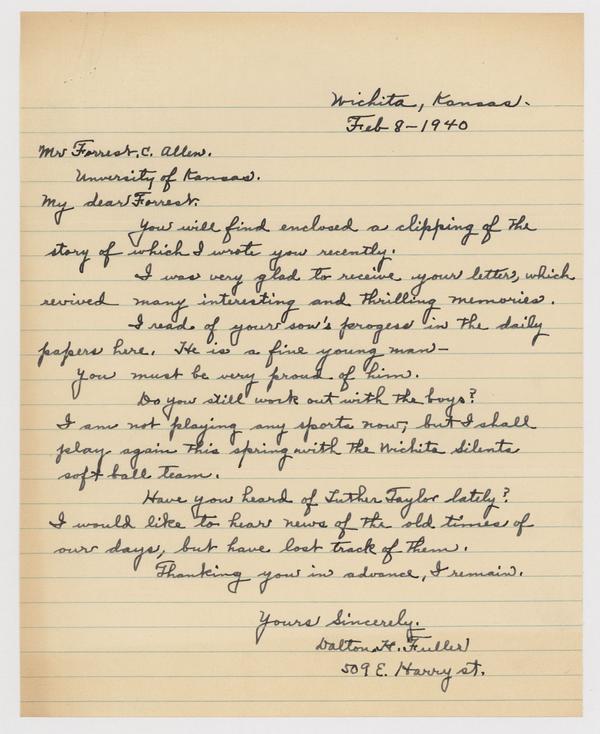 Wichita, Kansas.
Feb 8-1940
Mr Forrest. C. Allen.
Unversity of Kansas.
My dear Forrest.
You will find enclosed a clipping of the
story of which I wrote you recently.
I was very glad to receive your letter, which
revived many interesting and thrilling memories.
I read of your son's progess in the daily
papers here. He is a fine young man-
You must be very proud of him.
Do you still work out with the boys?
I am not playing any sports now, but I shall
play again this spring with the Wichita Silents
soft ball team.
Have you heard of Luther Taylor lately?
I would like to hear news of the old times of
our days, but have lost track of them.
Thanking you in advance, I remain.
Yours Sincerely.
Dalton H. Fuller
509 E. Harry st.